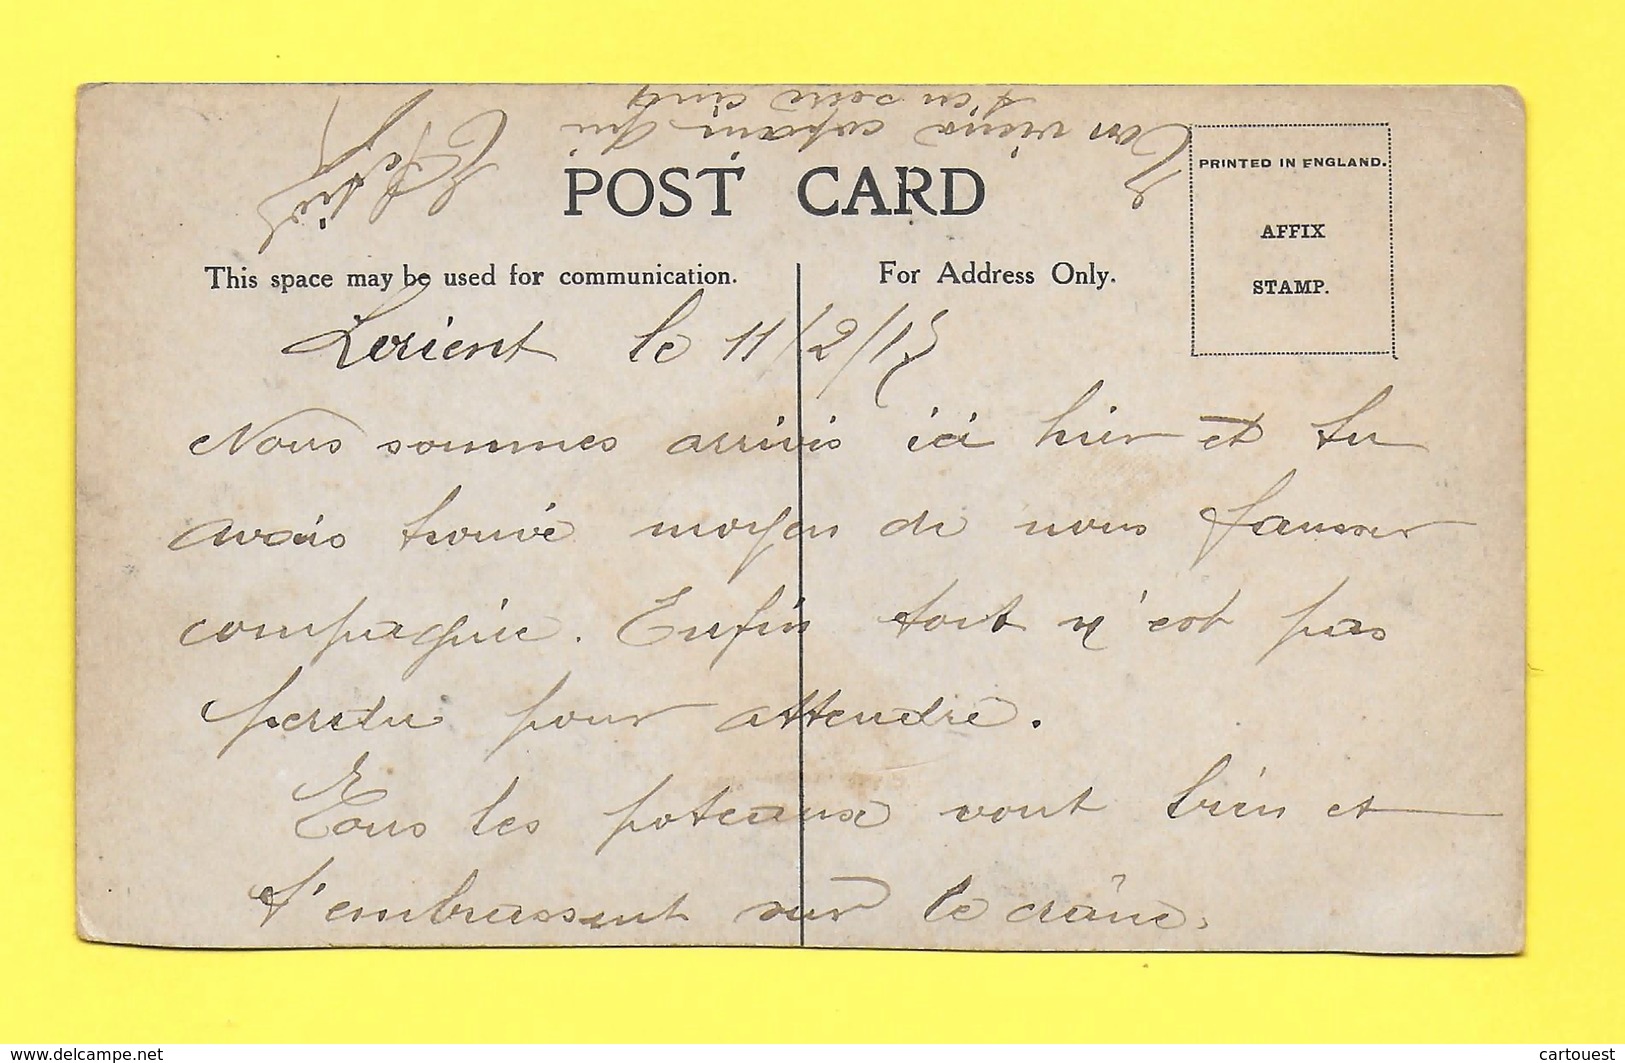 POST CARD
PRINTED IN ENGLAND.
AFFIX
STAMP.
This space may be used for communication.
For Address Only.
Lorient le 11/2/15
Nous sommes arrivés ici hier et tu
avais trouvé moyen de nous fausser
compagnie. Enfin tout n'est pas
perdu pour attendre.
Tous les poteaux vont bien et
t'embrassent sur le crâne.
Ton vieux copain qui
t'en serre cinq
www.delcampe.net
cartouest